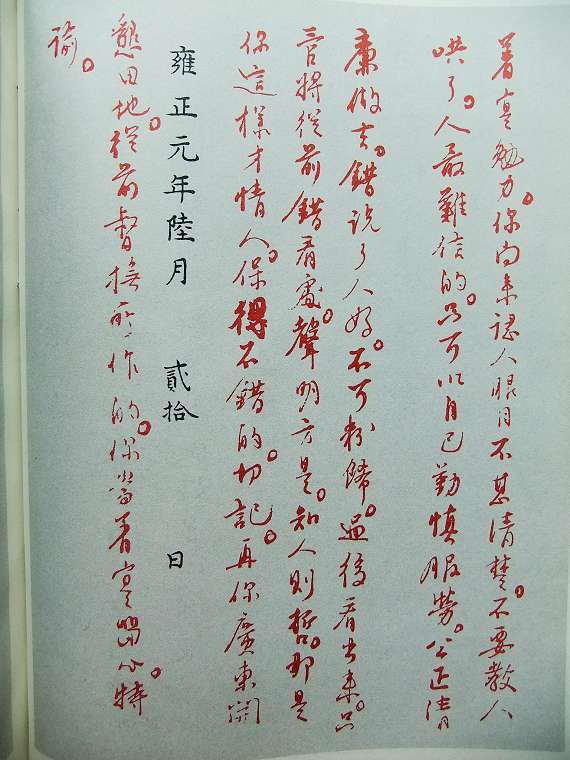 著實勉力。你向來認人眼目不甚清楚。不要教人
哄了。人最難信的。只可以自己勤慎服勞。公正清
廉做去。錯說了人好。不可粉飾。過後看出來。只
管將從前錯看處。聲明方是。知人則哲。那是
你這樣才情人。保得不錯的。切記。再你廣東開
雍正元年陸月 貳拾 日
懇田地。從前督撫所作的。你當著實留心。特
諭。